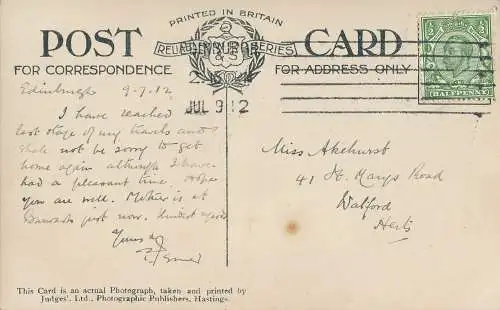 PRINTED IN BRITAIN
POST CARD
FOR CORRESPONDENCE
FOR ADDRESS ONLY
JUL 9 12
HALFPENNY
Edinburgh 9-7-12
I have reached
last stage of my travels and
shall not be sorry to get
home again although I have
had a pleasant time. Hope
you are well. Mother is at
just now. Kindest
Yours
Miss Akehurst
41 St. Marys Road
Watford
Herts
This Card is an actual Photograph, taken and printed by
Judges', Ltd., Photographic Publishers, Hastings.